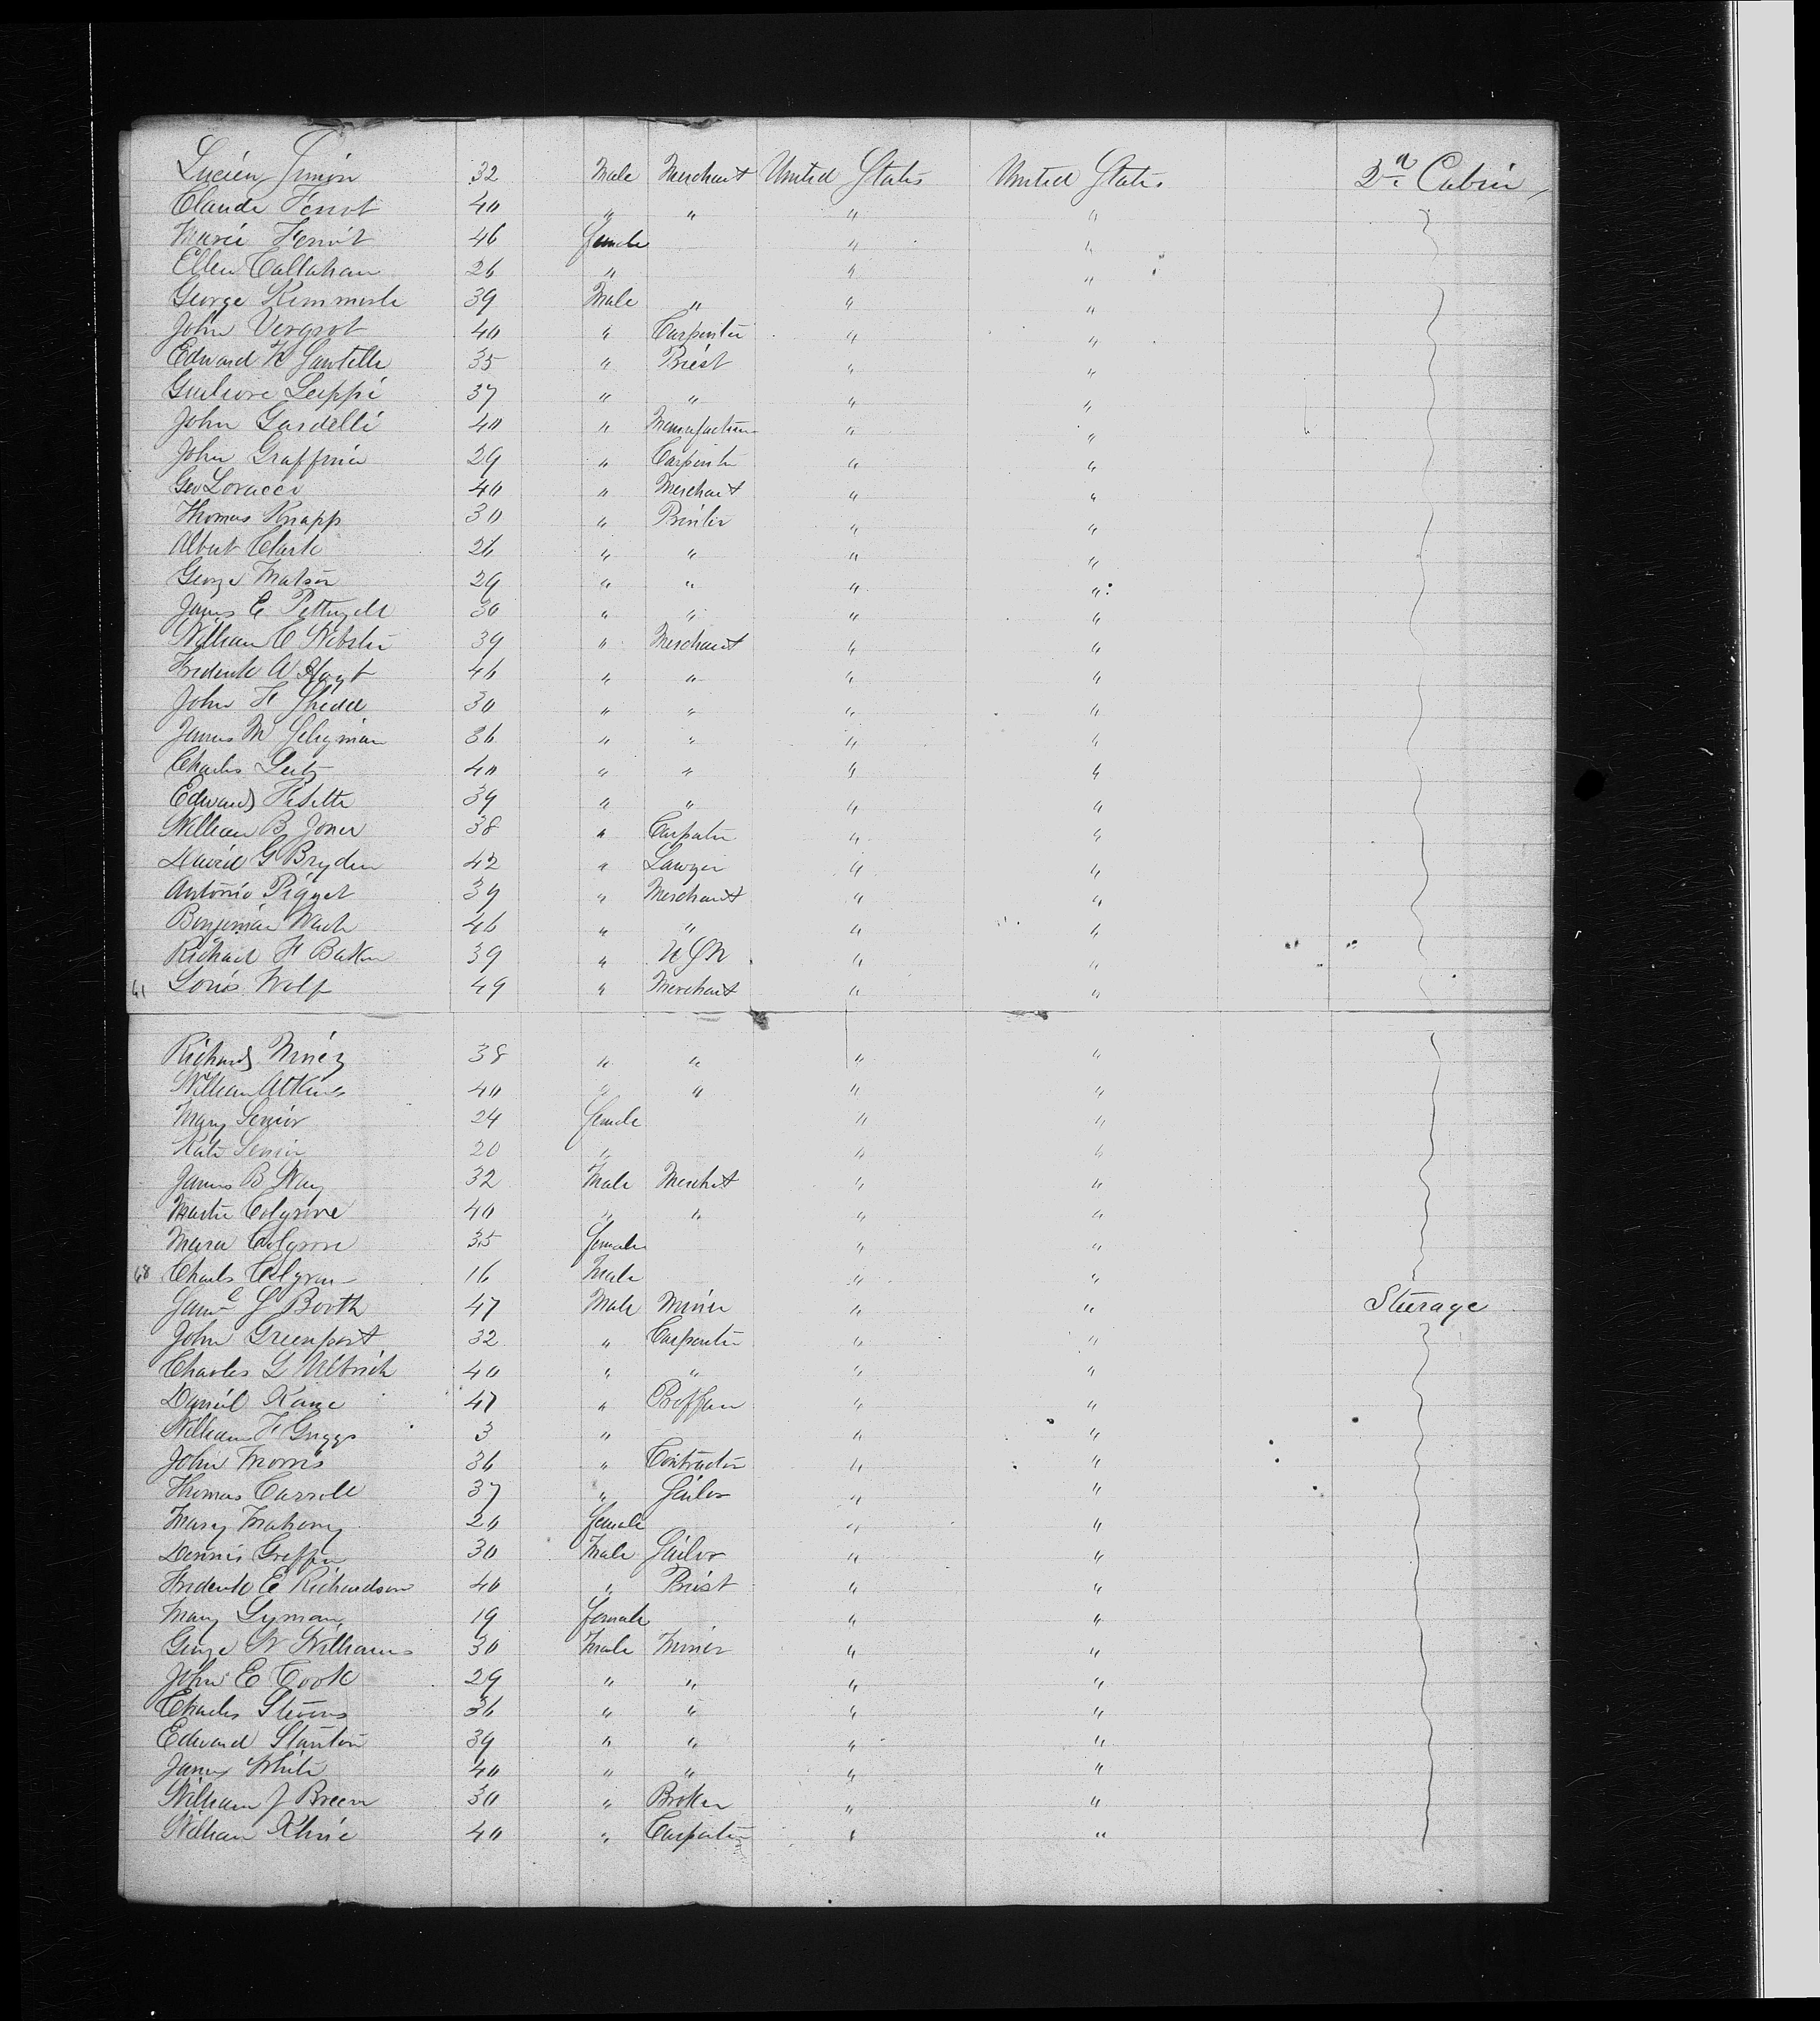 Lucien Simon 32 Male Merchant United States United States 2d Cabin
Claude Ferrot 40 " " " "
Marie Ferrot 46 female " "
Ellen Callahan 26 " " "
George Kemmerle 39 Male " " "
John Vergrot 40 " Carpenter " "
Edward K 35 " Priest " "
Leippi 37 " " " "
John Gardelli 40 " Manufacturer " "
John Graffinia 29 " Carpenter " "
Geo Loracco 40 " Merchant " "
Thomas Knapp 30 " Printer " "
Albert Clark 26 " " " "
George Watson 29 " " " "
James E 30 " " " "
William C Webster 39 " Merchant " "
Frederick A Hoyt 46 " " " "
John F Shedd 30 " " " "
James M Seligman 36 " " " "
Charles 40 " " " "
Edward 39 " " " "
William B Jones 38 " Carpenter " "
David G Bryden 42 " Lawyer " "
Antonio 39 " Merchant " "
Benjamin 46 " " " "
Richard F Baker 39 " U S N " "
61 Louis Wolf 49 " Merchant " "
Richard 38 " " " "
William Atkins 40 " " " "
Mary Senior 24 female " "
Kate Senior 20 " " "
James B Way 32 Male Merchant " "
Martin Colgrove 40 " " " "
Maria Colgrove 35 female " "
68 Charles Colgrove 16 Male " "
S Booth 47 Male Miner " " Steerage
John Greenport 32 " Carpenter " "
Charles L Ulbrich 40 " " " "
Daniel Kane 47 " " "
William F Griggs 3 " " "
John Morris 36 " Contractor " "
Thomas Carroll 37 " Sailor " "
Mary Mahony 20 female " "
Dennis Griffin 30 Male Sailor " "
Frederick E Richardson 40 " Priest " "
Mary Lyman 19 female " "
George W Williams 30 Male Miner " "
John E Cook 29 " " " "
Charles Stevens 36 " " " "
Edward Stanton 39 " " " "
James White 40 " " " "
William J Breen 30 " Broker " "
William Kline 40 " Carpenter " "